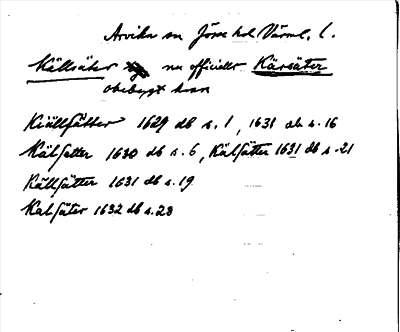 Arvika sn Jösse hd Värml. l.
Källsäter nu officiellt Kärsäter
obebyggt
Kiällsätter 1629 db s. 1, 1631 db s. 16
Kälsetter 1630 db s. 6, Kälsätter 1631 db s. 21
Källsätter 1631 db s. 19
Kalsäter 1632 db s. 23